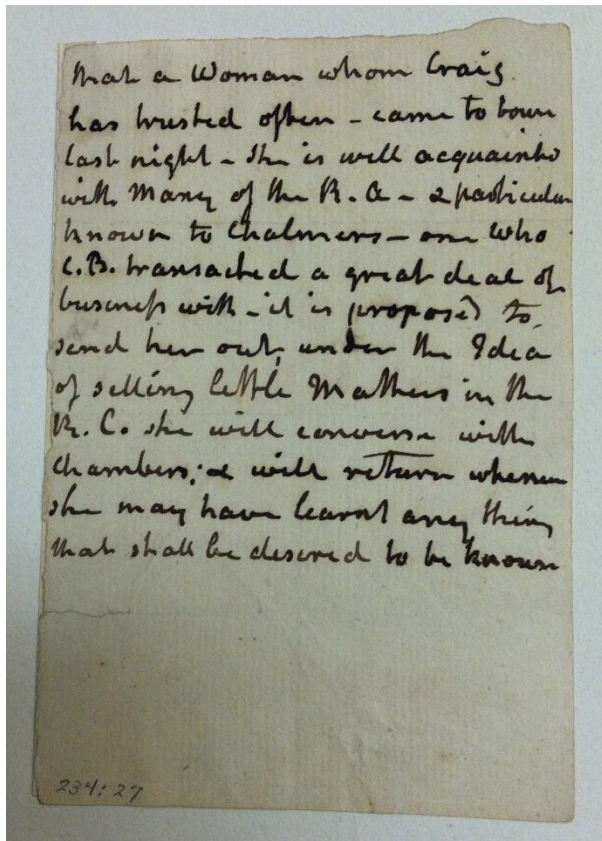 that a Woman whom Craig
has trusted often - came to town
last night - she is well acquainted
with Many of the R. A - & particular
known to Chalmers - one who
C. B. transacted a great deal of
business with - it is proposed to
send her out, under the Idea
of selling little Matters in the
R. C. she will converse with
Chambers; & will return whenever
she may have learnt any thing
that shall be desired to be known
234:27